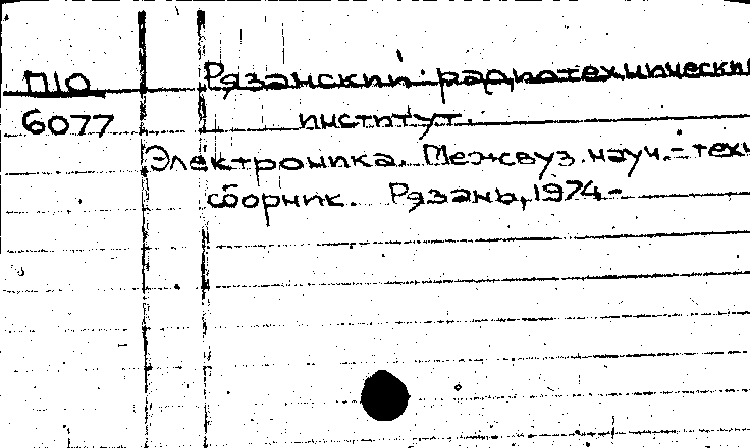 П10
6077
Рязанский радиотехнический
институт.
Электроника. Межвуз. науч.-техн
сборник. Рязань, 1974-